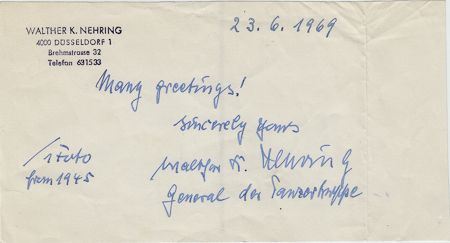 23.6.1969
WALTHER K. NEHRING
4000 DÜSSELDORF 1
Brehmstrasse 32
Telefon 631533
Many greetings!
Sincerely yours
/1 Foto
from 1945
Walther K. Nehring
General der Panzertruppe